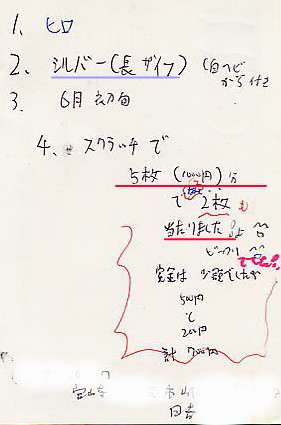 1、ヒロ
2、シルバー(長ザイフ)(白ヘビから付き
3、6月初旬
4、スクラッチで
5枚(1000円)分
で 2枚も
当たりました
ビックリ でした。
金は 少額でしたが
500円
と
200円
計700円